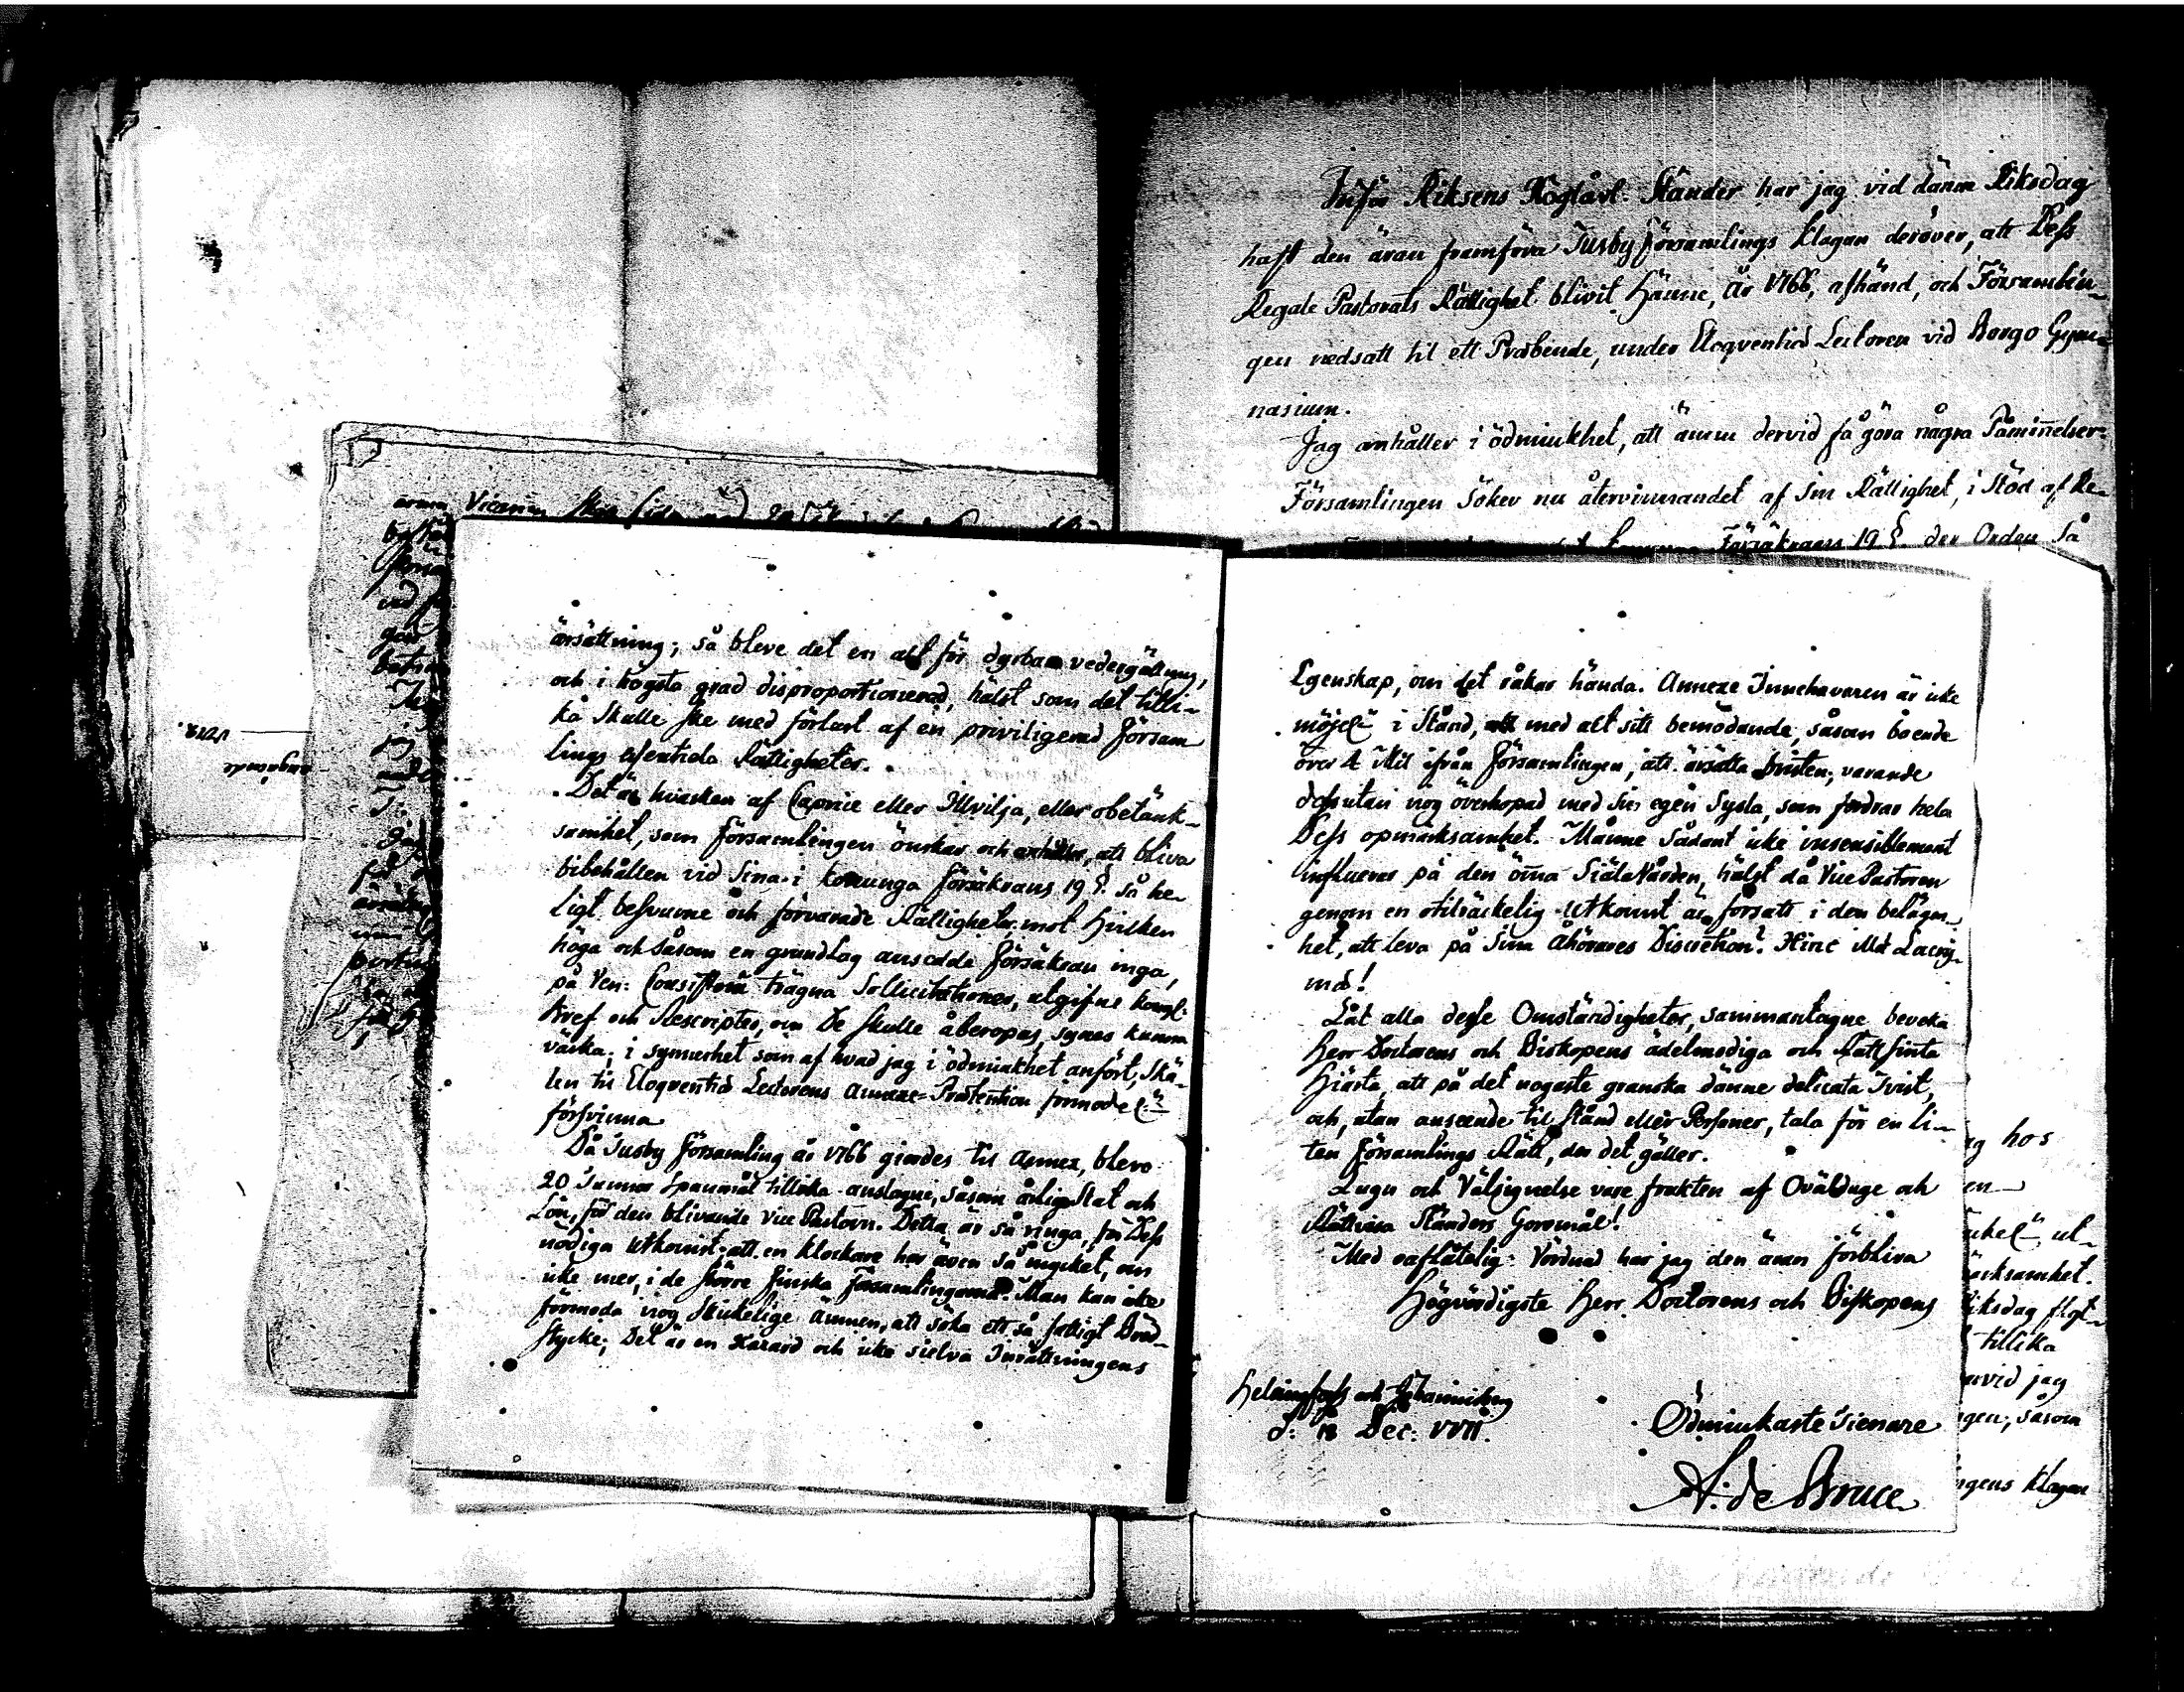 Inför Riksens Höglåvl. Ständer har jag vid dänna Riksdag
haft den äran framföra Tusby församlings klagan deröver, att Dess
Regale Pastorats Rättighet blivit Hänne, År 1766, afhänd, och Församlin-
gen nedsatt til ett Præbende, under Eloqventiæ Lectoren vid Borgo Gym-
nasium.
Jag anhåller i ödmiukhet, att ännu dervid få göra några Påminnelser.
Församlingen söker nu återvinnandet af Sin Rättighet, i Stöd af Re-
Försäkrans 19 §. der Orden Så
ärsättning; så bleve det en alt för dyrbar vedergällning,
och i högsta grad disproportionerad, hälst som det tilli-
ka Skulle ske med förlust af en priviligerad Försam
lings essentiela Rättigheter.
Det är hvarken af Caprice eller Illvilja, eller obetänk-
samhet, som församlingen önskar och anhåller, att bliva
bibehållen vid Sina i konunga försäkrans 19 §. så he-
ligt besvurne och förvarade Rättigheter. mot Hvilken
höga och såsom en grundlag ansedda Försäkran inga,
på Ven: Consistorii trägna Sollicitationer, utgifne kongl.
Bref och Rescripter, om De skulle åberopas, synas kunna
värka; i synnerhet som af hvad jag i ödmiukhet anfört, Skä-
len til Eloqventiæ Lectorens Annexe-Prætention förmodel:
försvinna
Då Tusby Församling år 1766 giordes til Annex, blevo
20 Tunnor Spanmål tillika anslagne, såsom årlig Stat och
Lön, för den blivande Vice Pastorn. Detta är så ringa, för Dess
nödiga Utkomst, att en klockare har även så mycket, om
icke mer, i de större finska Församlingarna. Man kan icke
förmoda nog Skickelige Ämnen, att söka ett så fattigt Bröd-
stycke; Det är en Hazard och icke sielva Inrättningens
Egenskap, om det råkar hända. Annexe Innehavaren är icke
möjel: i Stånd, att med alt sitt bemödande, såsom boende
över 4 Mil ifrån Församlingen, att ärsätta bristen; varande
dessutan nog överhopad med Sin egen Sysla, som fordrar hela
Dess opmärksamhet. Månne Sådant icke insensiblement
influerar på den öma Siäla Vården, hälst då Vice Pastoren
genom en otilräckelig Utkomst är försatt i den belägen-
het, att leva på Sina Åhörares Discretion? Hinc illæ Lacry-
mæ!
Låt alla desse Omständigheter, sammantagne beveka
Herr Doctorens och Biskopens ädelmodiga och Rättsinta
Hiärta, att på det nogaste granska dänne delicata Tvist,
och, utan anseende til Stånd eller Personer, tala för en li-
ten Församlings Rätt, der det gäller.
Lugn och Välsignelse vare frukten af Oväldige och
Rättvisa Ständers Göromål!
Med oaflåtelig Vördnad har jag den äran förbliva
Högvördigste Herr Doctorens och Biskopens
Helsingfors och Johannisberg
d: 18 Dec:
Ödmiukaste Tienare
A: de Bruce
hos
tillika
jag
såsom
klagan